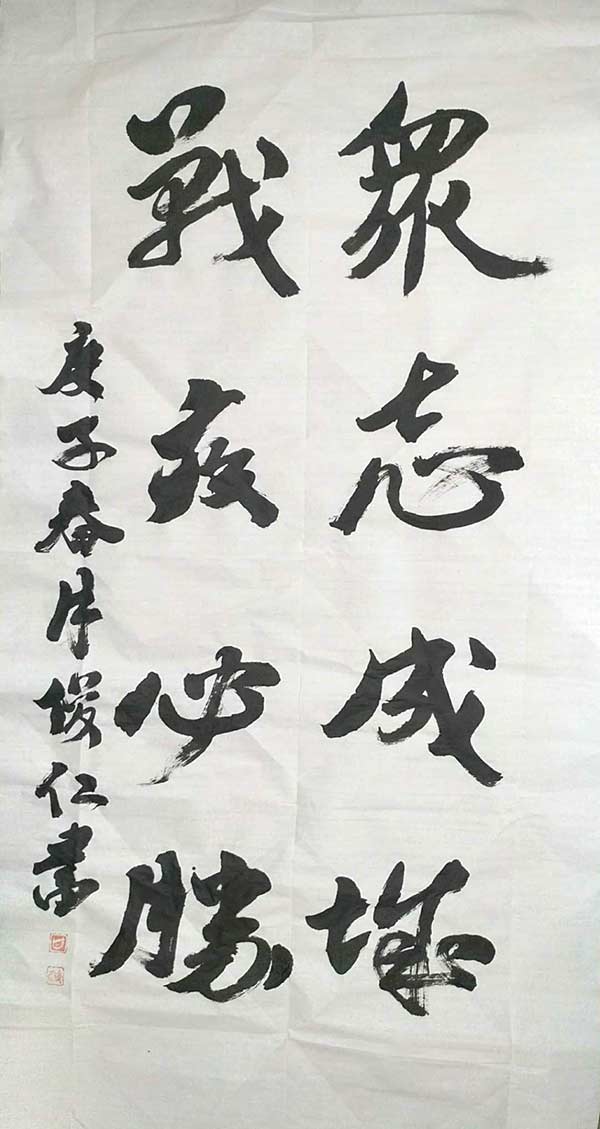 衆志成城
戰疫必勝
庚子春俊仁書